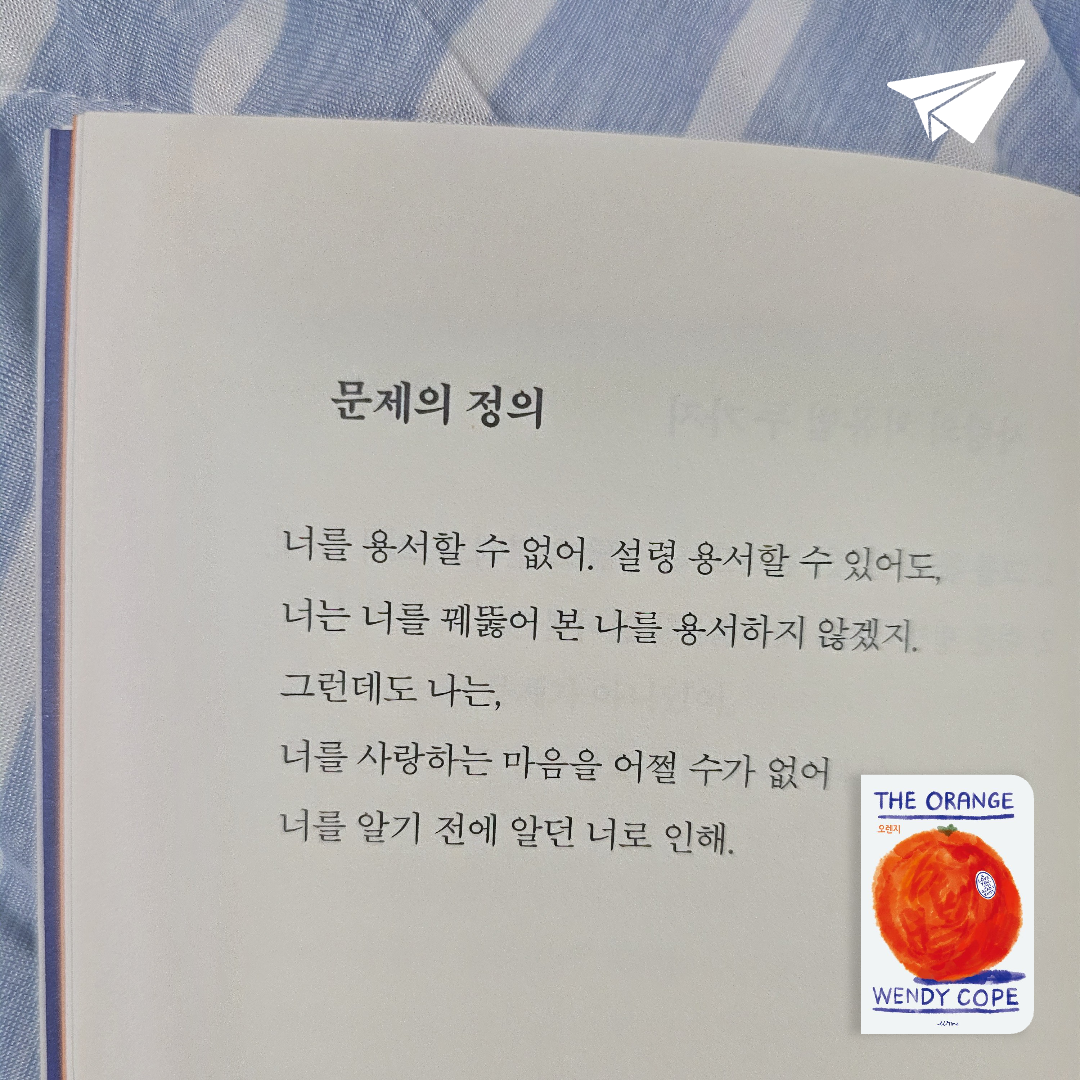 문제의 정의
너를 용서할 수 없어. 설령 용서할 수 있어도,
너는 너를 꿰뚫어 본 나를 용서하지 않겠지.
그런데도 나는,
너를 사랑하는 마음을 어쩔 수가 없어
너를 알기 전에 알던 너로 인해.
THE ORANGE
오렌지
WENDY COPE